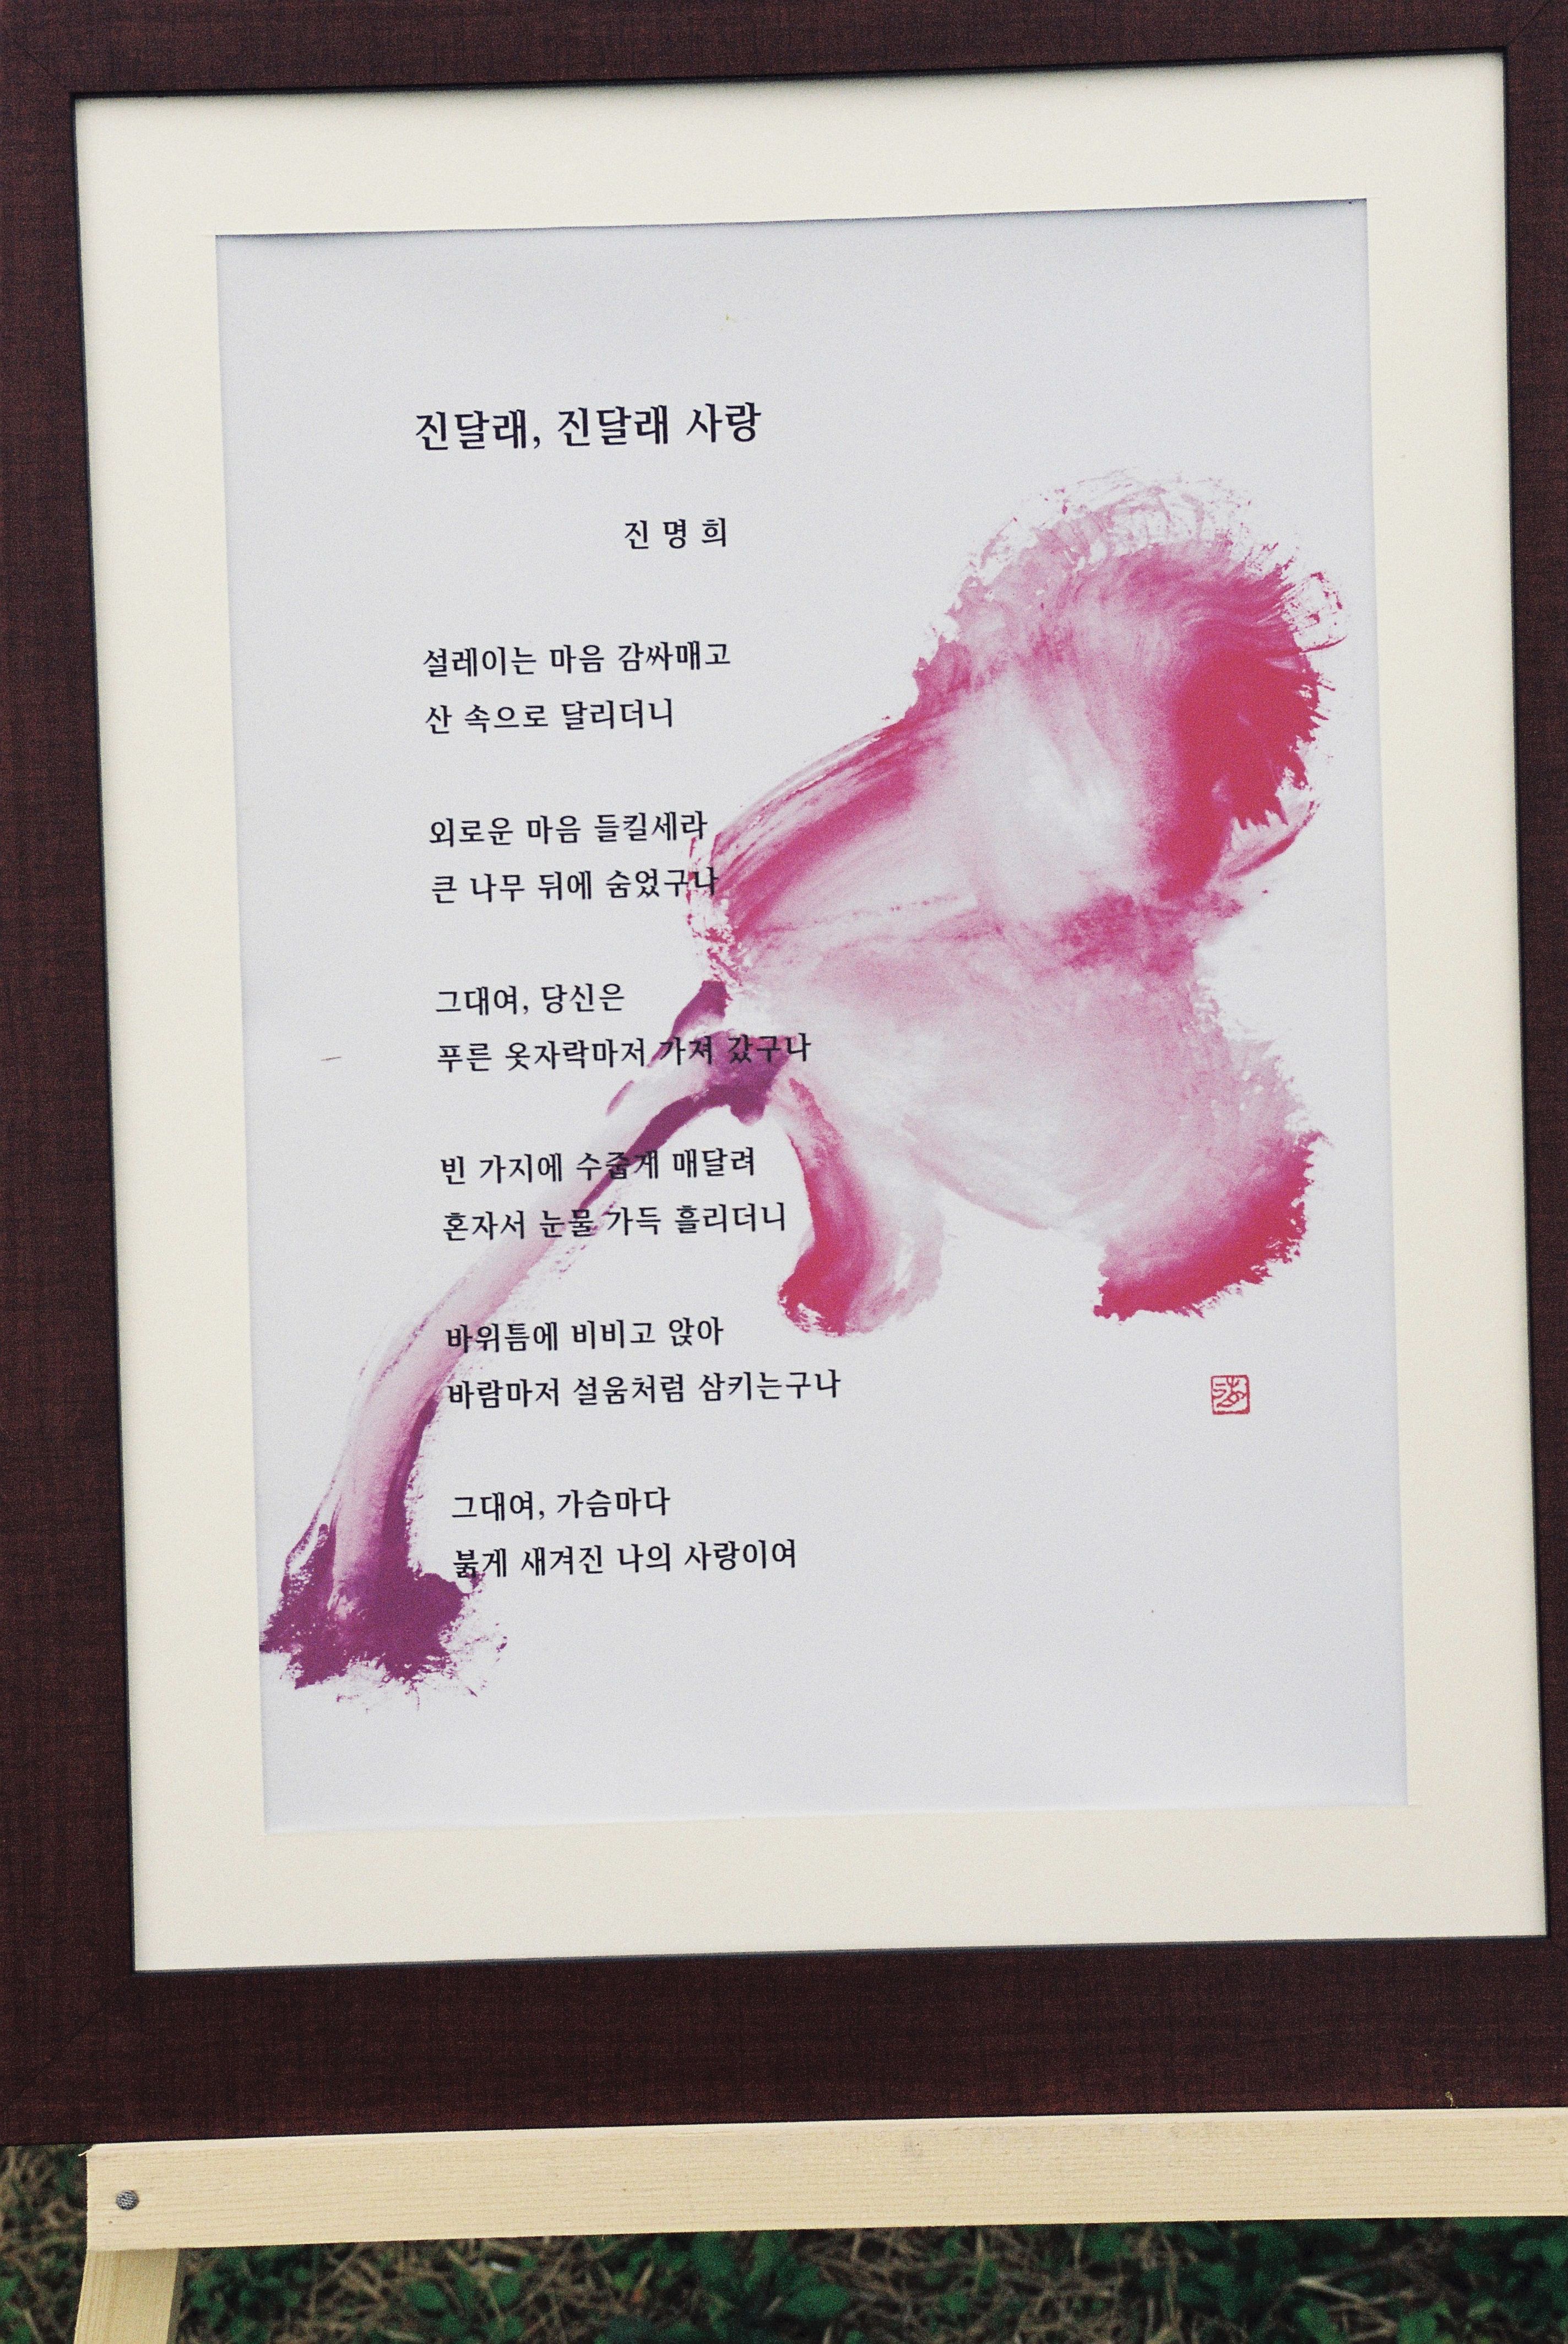 진달래, 진달래 사랑
진 명 희
설레이는 마음 감싸매고
산 속으로 달리더니
외로운 마음 들킬세라
큰 나무 뒤에 숨었구나
그대여, 당신은
푸른 옷자락마저 가져 갔구나
빈 가지에 수줍게 매달려
혼자서 눈물 가득 흘리더니
바위틈에 비비고 앉아
바람마저 설움처럼 삼키는구나
그대여, 가슴마다
붉게 새겨진 나의 사랑이여